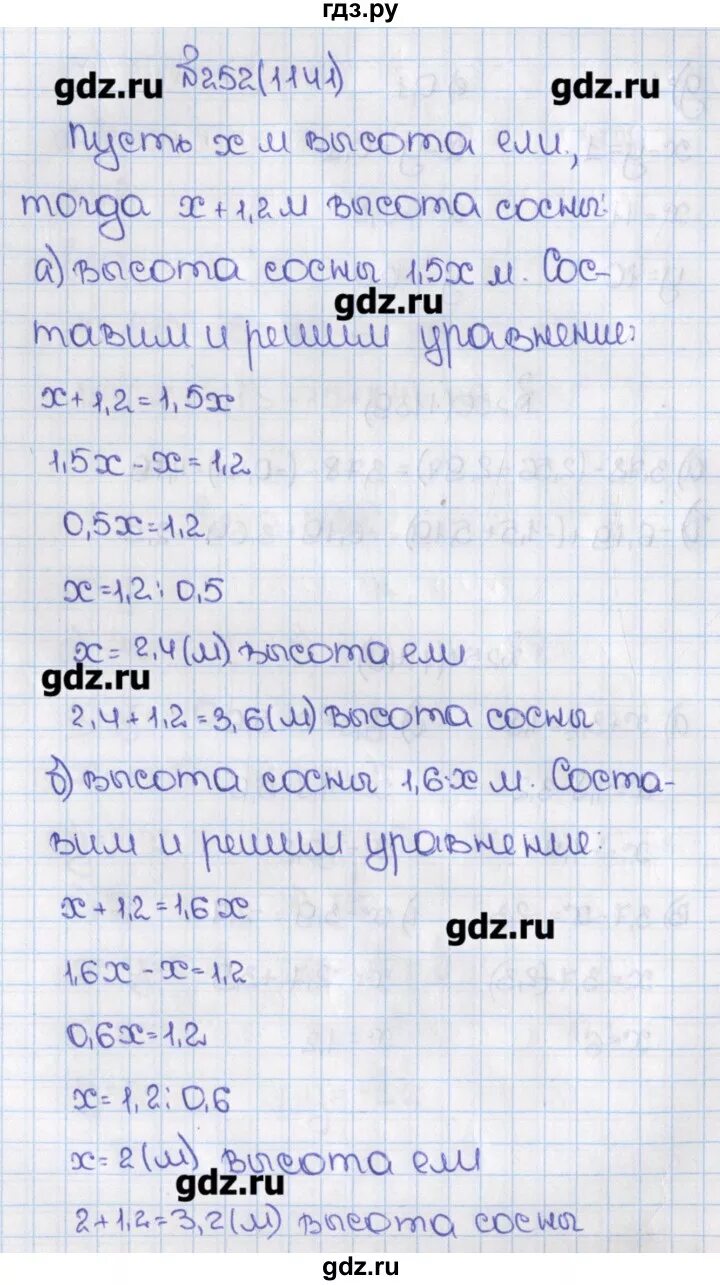 гдз.ру
№252(1141)
gdz.ru gdz.ru
Пусть x м высота ели,
тогда x+1,2м высота сосны.
а) высота сосны 1,5x м. Сос-
gdz.ru
тавим и решим уравнение:
x+1,2=1,5x
1,5x-x=1,2
0,5x=1,2
x=1,2:0,5
x=2,4(м) высота ели
gdz.ru
2,4+1,2=3,6(м) высота сосны
б) высота сосны 1,6·x м. Соста-
вим и решим уравнение:
x+1,2=1,6x
gdz.ru
1,6x-x=1,2
0,6x=1,2
x=1,2:0,6
x=2(м) высота ели
gdz.ru
2+1,2=3,2(м) высота сосны
gdz.ru